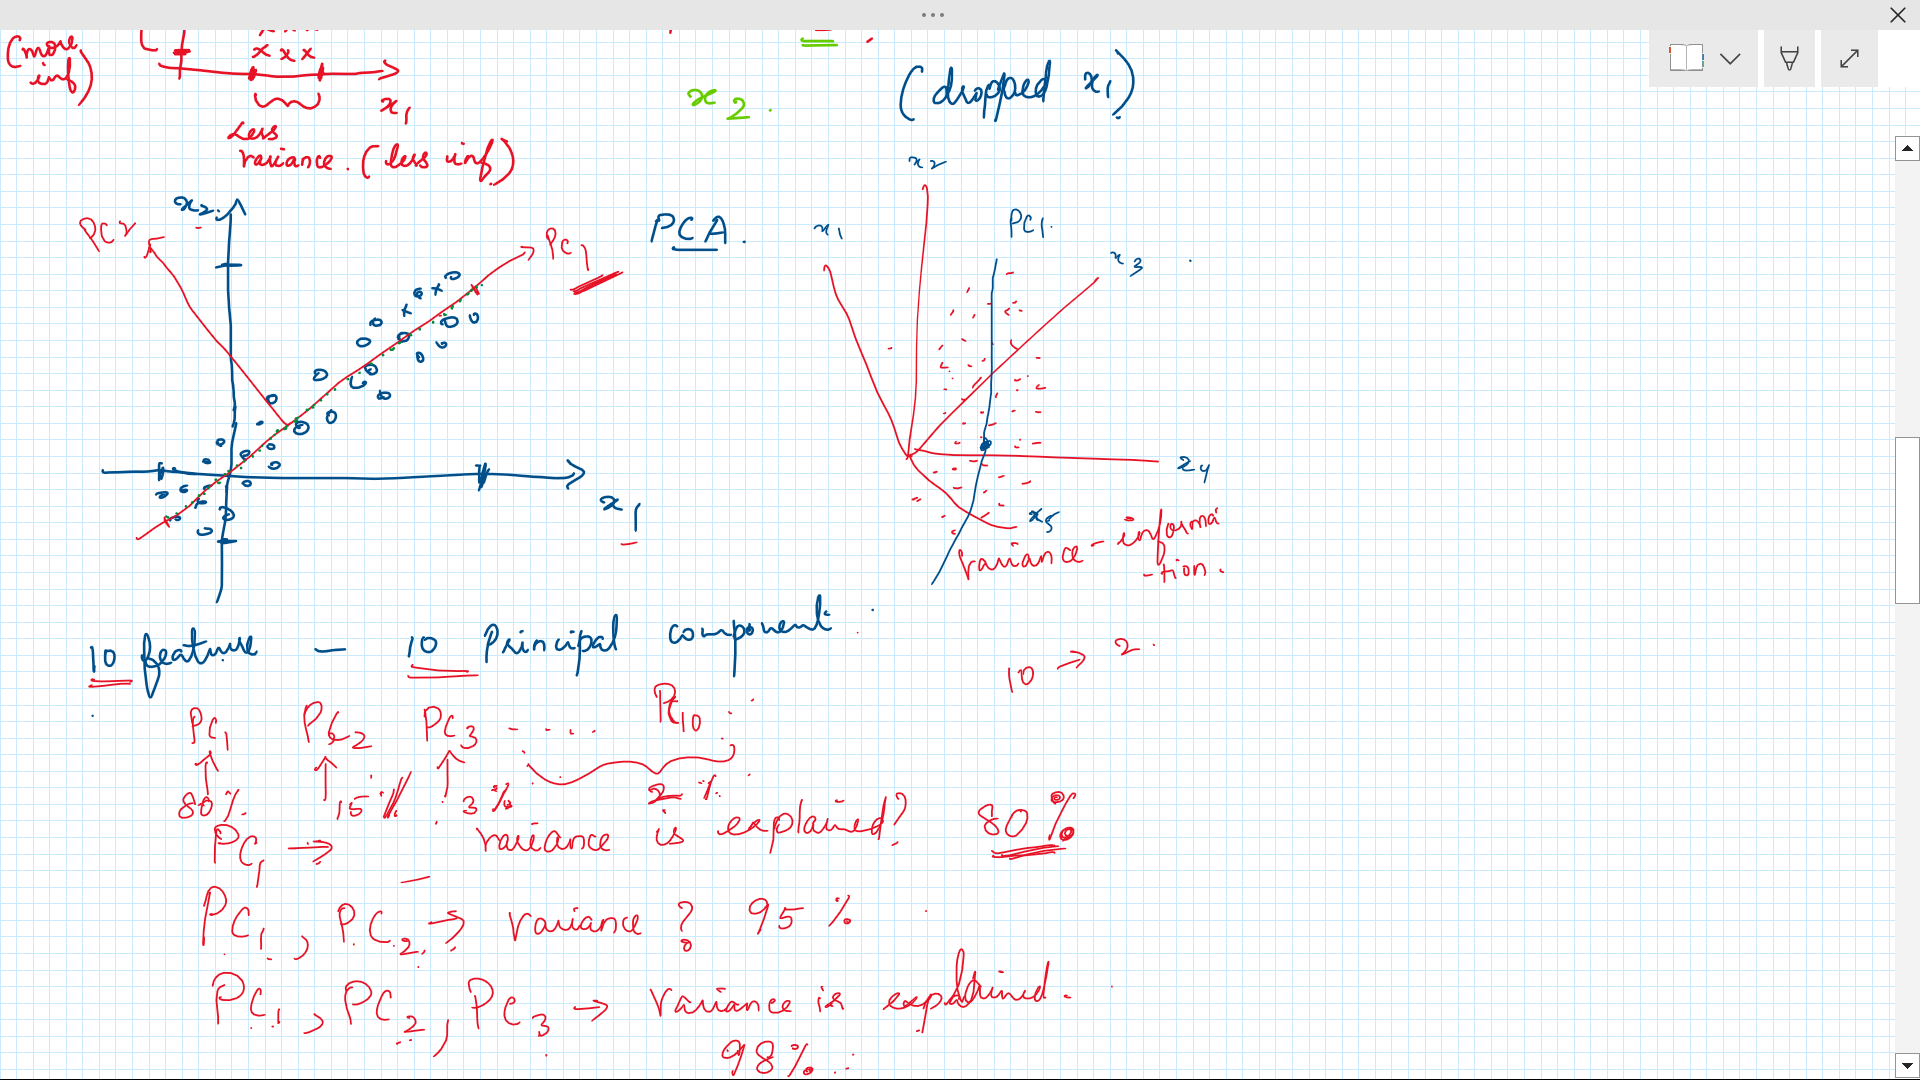 (more
inf)
x x x
x₁
Less
variance. (less inf)
x₂.
(dropped x₁)
x₂.
PC2
PC₁
x₁
PCA.
x₂
x₁
PC1.
x₃
x₄
x₅
variance - informa
-tion.
10 feature — 10 Principal component
10 → 2.
PC₁ PC₂ PC₃ - .... PC₁₀
80% 15% 3% 2%
PC₁ → variance is explained? 80%
PC₁, PC₂ → variance? 95%
PC₁, PC₂, PC₃ → variance is explained.
98%